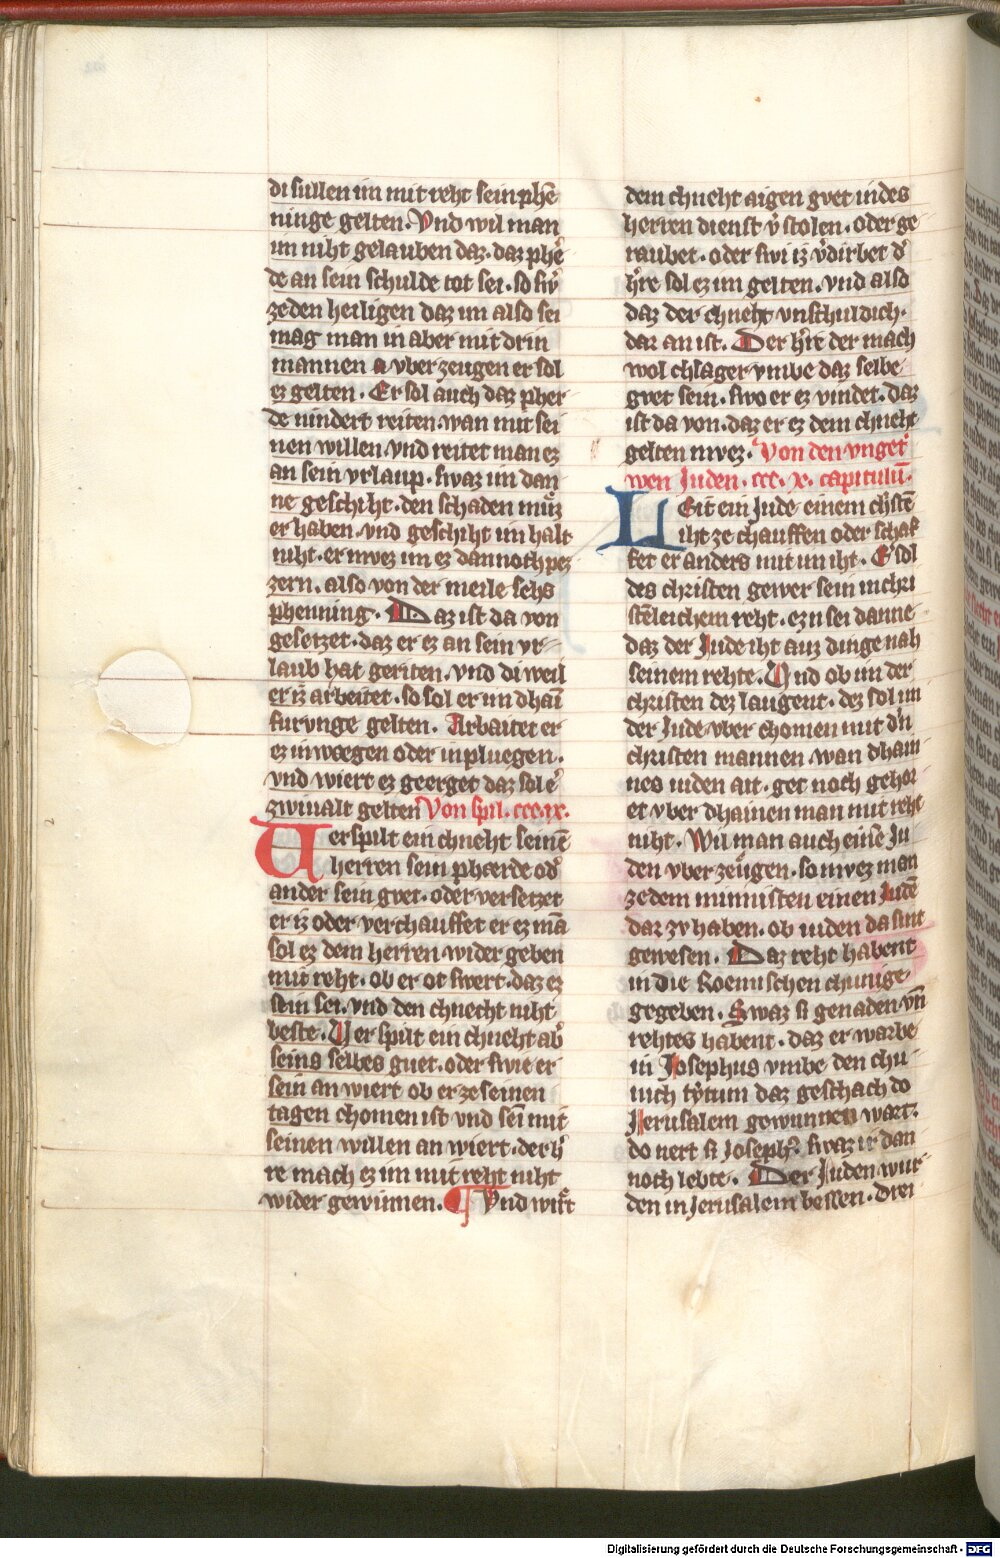 di sullen im mit reht sein phē
ninge gelten. Vnd wil man
im niht gelauben daz. daz phe͛
de an sein schulde tot sei. so sw͛
ze den heiligen daz im also sei
mag man in aber mit drin
mannen vber zeugen er sol
ez gelten. Er sol auch daz pher
de nindert reiten. wan mit sei
nen willen. vnd reitet man ez
an sein vrlaup. swaz im dan
ne geschiht. den schaden muͤz
er haben. vnd geschiht im halt
niht. er mvez im ez dannoch pez
zern. also von der meile sehs
phenning. Daz ist da von
gesetzet. daz er ez an sein vr-
laub hat geriten. vnd di weil
er iz arbeitet. so sol er im dhai
furvnge gelten. Arbaitet er
ez in waegen oder in pluegen.
vnd wiert ez geerget daz sol e͛
zwiualt gelten Von spil. ccc. ix.
Verspilt ein chneht seinē
herren sein phærde od͛
ander sein gvet. oder versetzet
er iz oder verchauffet er ez mā
sol ez dem herren wider geben
mit reht. ob er ot swert. daz ez
sein sei. vnd den chnecht niht
beste. Verspilt ein chneht ab͛
seins selbes guet. oder swie er
sein an wiert ob er ze seinen
tagen chomen ist vnd sei mit
seinen willen an wiert. der h͛
re mach ez im mit reht niht
wider gewinnen. Vnd wirt
dem chneht aigen gvet in des
herren dienst v͛ stolen. oder ge
raubet. oder swi iz v͛dirbet d͛
h͛re sol ez im gelten. vnd also
daz der chneht vnschuldich.
dar an ist. Der h͛re der mach
wol chlager vmbe daz selbe
gvet sein. swo er ez vindet. daz
ist da von. daz er ez dem chneht
gelten mvez. Von den vnget͛
wen Juden. ccc. x. capitulū.
Leit ein Jude einem ch͛stē
iht ze chauffen oder schaf
fet er anders mit im iht. Er sol
des christen gewer sein in chri
stēleichem reht. ez n sei danne
daz der Jude iht auz dinge nah
seinem rehte. Vnd ob im der
christen dez laugent. dez sol im
der Jude vber chomen mit d͛n
christen mannen. wan dhain
nes iuden ait. get noch gehor
et vber dhainen man mit reht
niht. Wil man auch einē Ju
den vber zeugen. so mvez man
ze dem minnisten einen Judē
dar zv haben. ob iuden da sint
gewesen. Daz reht habent
in die Roemischen chunige
gegeben. Swaz si genaden vn̄
rehtes habent. daz er warbe
in Josephus vmbe den chu
nich tytum daz geschach do
Jerusalem gewunnen wart.
do nert si Joseph͛. swaz ir dan
noch lebte. Der Juden wur
den in Jerusalem besten. drei
Digitalisierung gefördert durch die Deutsche Forschungsgemeinschaft - DFG